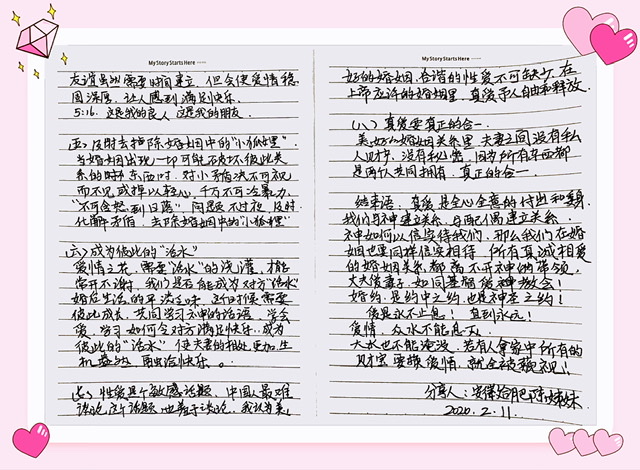 My Story Starts Here
友谊虽然需要时间建立，但会使爱情稳
固深厚，让人感到满足快乐.
5:16. 这是我的良人 这是我的朋友.
(五) 及时去除婚姻中的"小狐狸".
当婚姻出现一切可能破坏彼此关
系的东西时，对小矛盾决不可视
而不见或掉以轻心，千万不可冷暴力.
"不可含怒到日落" 问题不过夜，及时
化解矛盾，去除婚姻中的"小狐狸"
(六) 成为彼此的"活水"
爱情之花，需要"活水"的浇灌，才能
常开不谢，我们是否能成为对方"活水"
婚后生活的平淡乏味，这时候需要
彼此成长，共同学习神的话语，学会
爱，学习如何令对方满足快乐，成为
彼此的"活水" 使夫妻的相处更加生
机盎然，融洽快乐。
(七) 性爱是个敏感话题，中国人最难
谈论这个话题 也羞于谈论，我认为美
My Story Starts Here
好的婚姻，和谐的性爱不可缺少，在
上帝允许的婚姻里，真爱予人自由和释放.
(八) 真爱要真正的合一.
美好的婚姻关系里，夫妻之间没有私
人财产，没有秘密，因为所有东西都
是两个共同拥有，真正的合一.
结束语：真爱是全心全意的付出和
我们与神建立关系，与配偶建立关系.
神如何以信实待我们，那么我们在婚
姻也要同样信实相待，所有真诚相爱
的婚姻关系都离不开神的带领，
丈夫爱妻子，如同基督爱神教会！
婚约，是约中之约，也是神圣之约！
爱是永不止息！直到永远！
爱情，众水不能息灭，
大水也不能淹没，若有人拿家中所有的
财宝要换爱情，就全被藐视！
分享人：安徽合肥陈姊妹
2020.2.11.